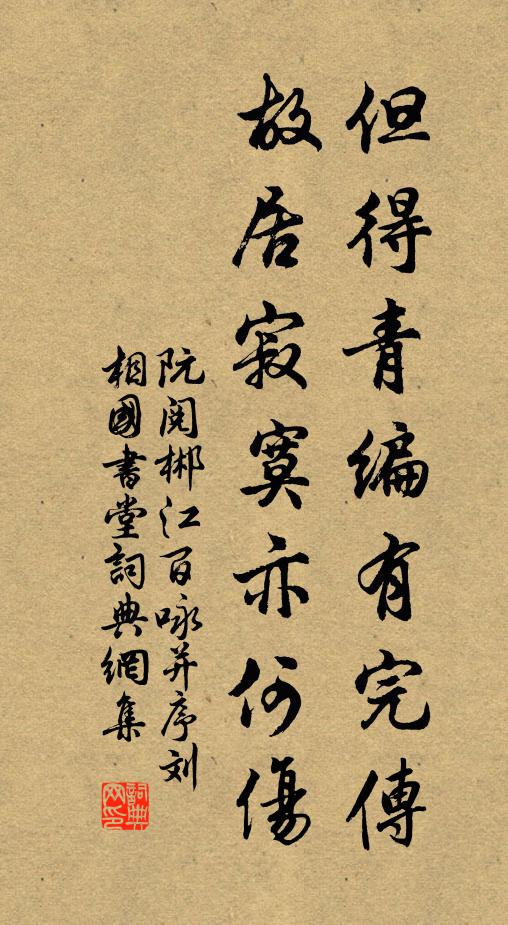 但得青編有完傳
故居寂寞亦何傷
阮閱郴江百咏并序刘
相國書堂詞典網集
詞典
网印